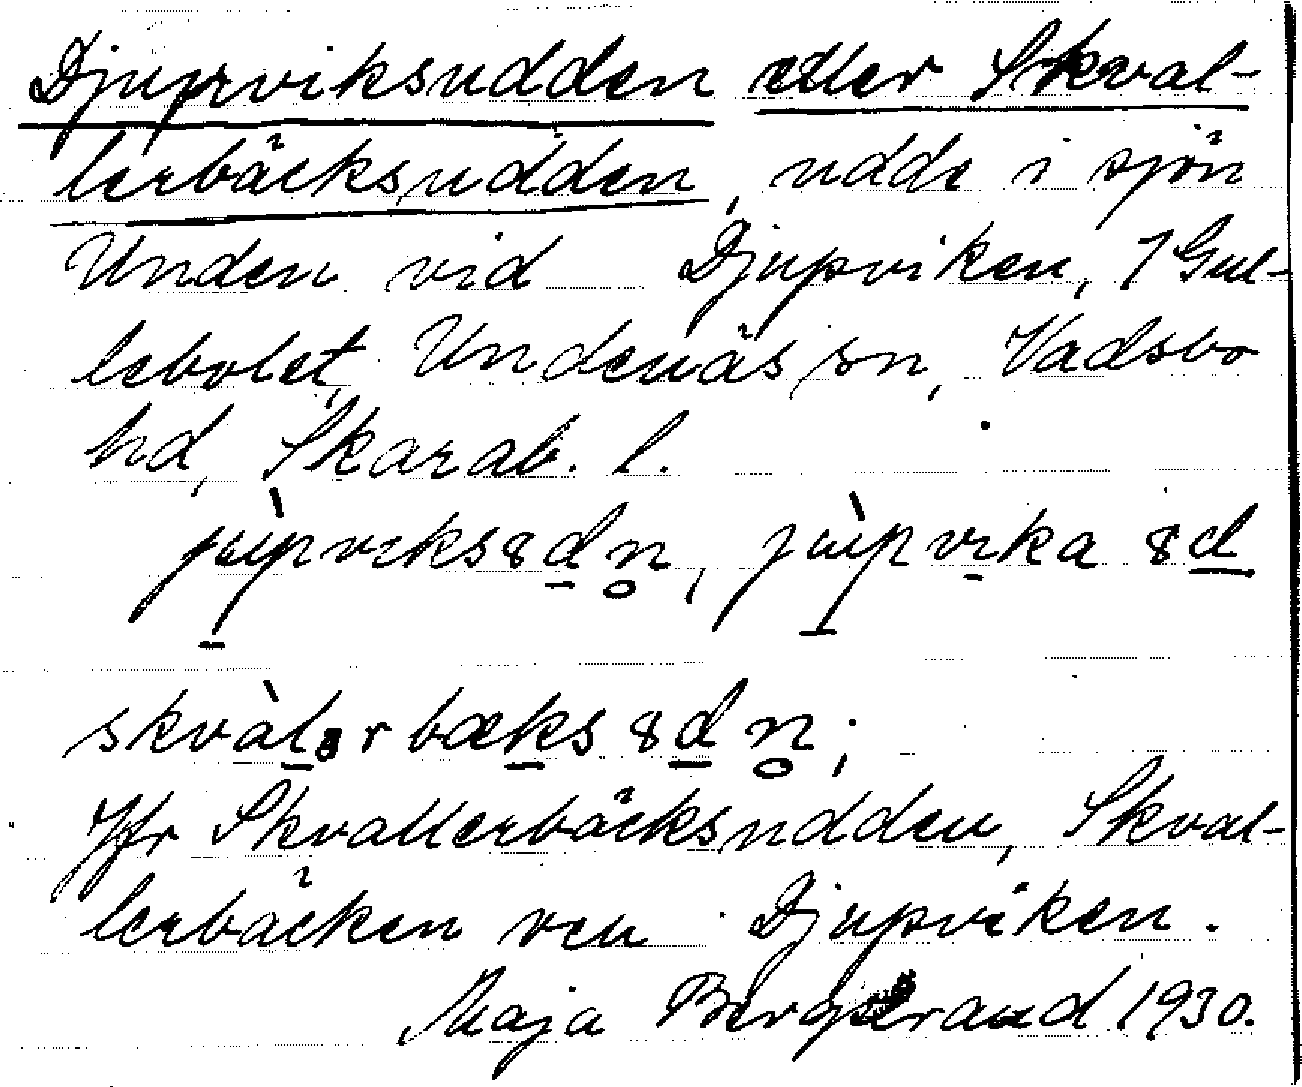 Djupviksudden eller Skval-
lerbäcksudden, udde i sjön
Unden vid Djupviken, 7 Gul-
lebolet, Undenäs sn, Vadsbo
hd, Skarab. l.
jùpviksȣdn̥, jùpvika ȣd
skvàlər bæksȣdn̥;
Jfr Skvallerbäcksudden, Skval-
lerbäcken och Djupviken.
Maja Bergstrand 1930.